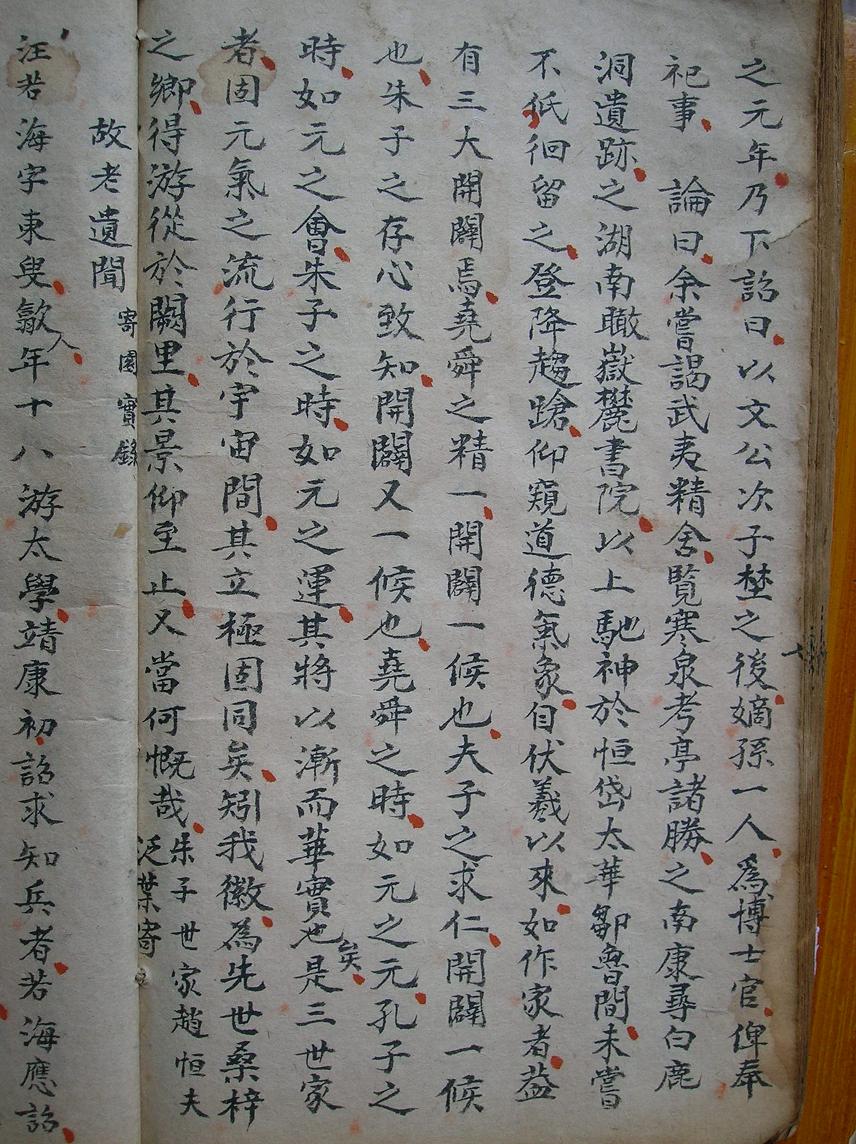 之元年乃下詔曰以文公次子埜之後嫡孫一人為博士官俾奉
祀事　論曰余嘗謁武夷精舍覧寒泉考亭諸勝之南康尋白鹿
洞遺跡之湖南瞰嶽麓書院以上馳神於恒岱太華鄒魯間未嘗
不低徊留之登降趨蹌仰窺道德氣象自伏羲以來如作家者葢
有三大開闢焉堯舜之精一開闢一候也夫子之求仁開闢一候
也朱子之存心致知開闢又一候也堯舜之時如元之元孔子之
時如元之會朱子之時如元之運其將以漸而華實也矣是三世家
者固元氣之流行於宇宙間其立極固同矣矧我徽為先世桑梓
之鄉得游從於闕里其景仰至止又當何慨哉
朱子世家趙恒夫
泛葉寄
故老遺聞
寄園實錄
汪若海字東叟歙人年十八游太學靖康初詔求知兵者若海應詔